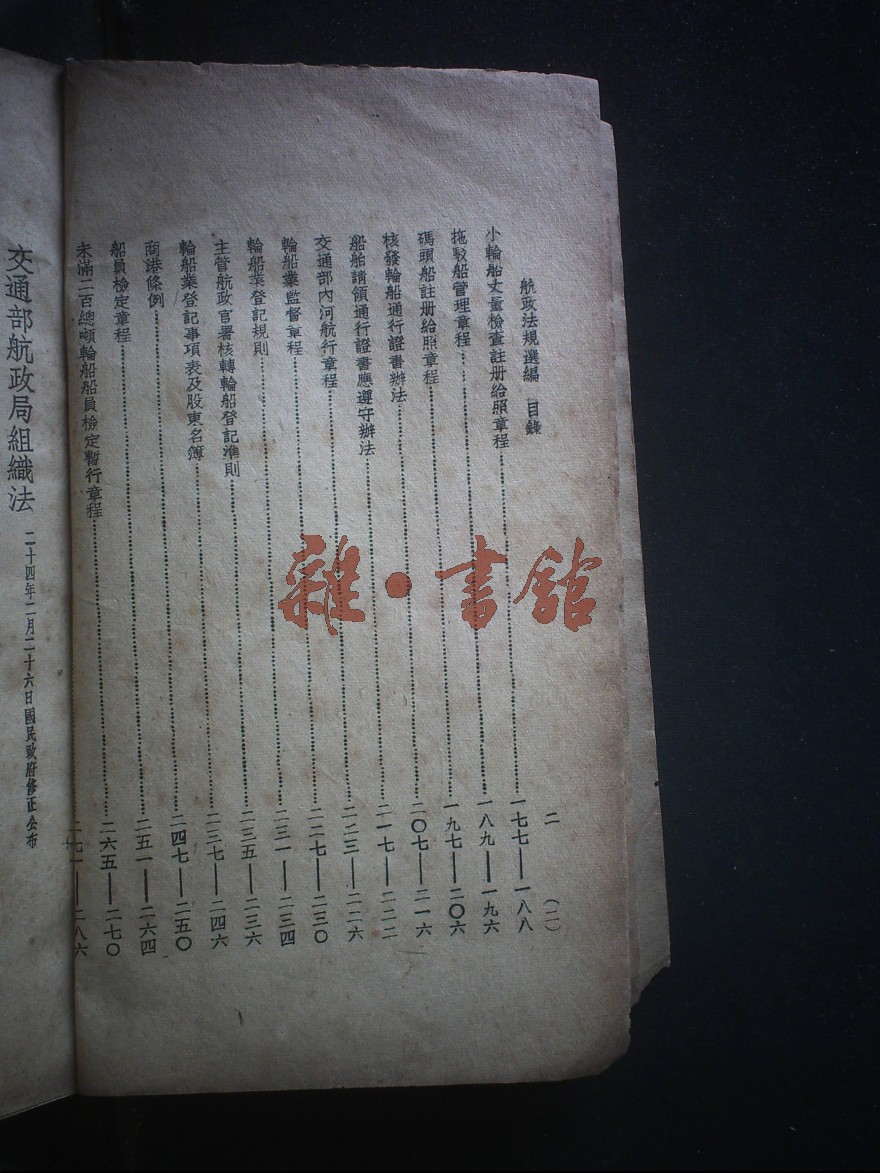 航政法規選編 目錄 二 (二)
小輪船丈量檢查註册給照章程 一七七——一八八
拖駁船管理章程 一八九——一九六
碼頭船註册給照章程 一九七——二〇六
核發輪船通行證書辦法 二〇七——二一六
船舶請領通行證書應遵守辦法 二一七——二二二
交通部內河航行章程 二二三——二二六
輪船業監督章程 二二七——二三〇
輪船業登記規則 二三一——二三四
主管航政官署核轉輪船登記准則 二三五——二三六
輪船業登記事項表及股東名簿 二三七——二四六
商港條例 二四七——二五〇
船員檢定章程 二五一——二六四
未滿二百總噸輪船船員檢定暫行章程 二六五——二七〇
二七一——二八六
交通部航政局組織法 二十四年二月二十六日國民政府修正公布
雜·書館